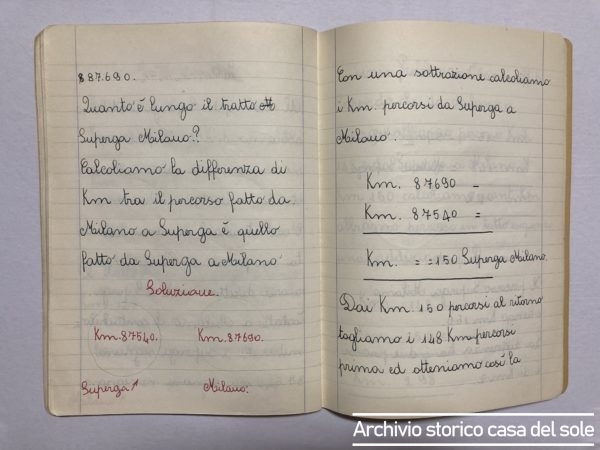 887.690.
Quanto è lungo il tratto
Superga Milano?
Calcoliamo la differenza di
Km tra il percorso fatto da
Milano a Superga è quello
fatto da Superga a Milano
Soluzione.
Km. 87540. Km. 87690.
Superga Milano:
Con una sottrazione calcoliamo
i Km. percorsi da Superga a
Milano.
Km. 87690 -
Km. 87540 =
Km. = = 150 Superga Milano.
Dai Km 150 percorsi al ritorno
togliamo i 148 Km percorsi
prima ed otteniamo così la
Archivio storico casa del sole